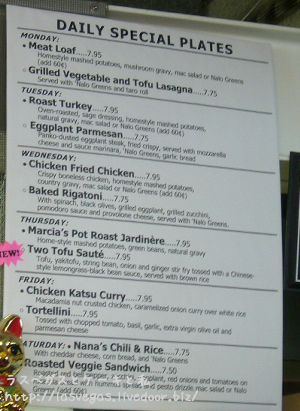 DAILY SPECIAL PLATES
MONDAY:
• Meat Loaf.....7.95
Homestyle mashed potatoes, mushroom gravy, mac salad or Nalo Greens
(add 60¢)
○ Grilled Vegetable and Tofu Lasagna.....7.75
Served with 'Nalo Greens and taro roll
TUESDAY:
• Roast Turkey.....7.95
Oven-roasted, sage dressing, homestyle mashed potatoes,
natural gravy, mac salad or Nalo Greens (add 60¢)
○ Eggplant Parmesan.....7.75
Panko-dusted eggplant steak, fried crispy, served with mozzarella
cheese and sauce marinara, 'Nalo Greens, garlic bread
WEDNESDAY:
• Chicken Fried Chicken.....7.95
Crispy boneless chicken, homestyle mashed potatoes,
country gravy, mac salad or Nalo Greens (add 60¢)
○ Baked Rigatoni.....7.75
With spinach, black olives, grilled eggplant, grilled zucchini,
pomodoro sauce and provolone cheese, served with 'Nalo Greens.
THURSDAY:
• Marcia's Pot Roast Jardinère.....7.95
Home-style mashed potatoes, green beans, natural gravy
NEW!
○ Two Tofu Sauté.....7.95
Tofu, yakitofu, string bean, onion and ginger stir fry tossed with a Chinese-
style lemongrass-black bean sauce, served with brown rice
FRIDAY:
• Chicken Katsu Curry.....7.95
Macadamia nut crusted chicken, caramelized onion curry over white rice
○ Tortellini.....7.95
Tossed with chopped tomato, basil, garlic, extra virgin olive oil and
parmesan cheese
SATURDAY: • Nana's Chili & Rice.....7.75
With cheddar cheese, corn bread, and 'Nalo Greens
Roasted Veggie Sandwich.....7.50
Roasted red bell pepper, eggplant, red onions and tomatoes on
hummus and pesto drizzle, mac salad or Nalo
Greens (add 60¢)
http://lasvegas.livedoor.biz/